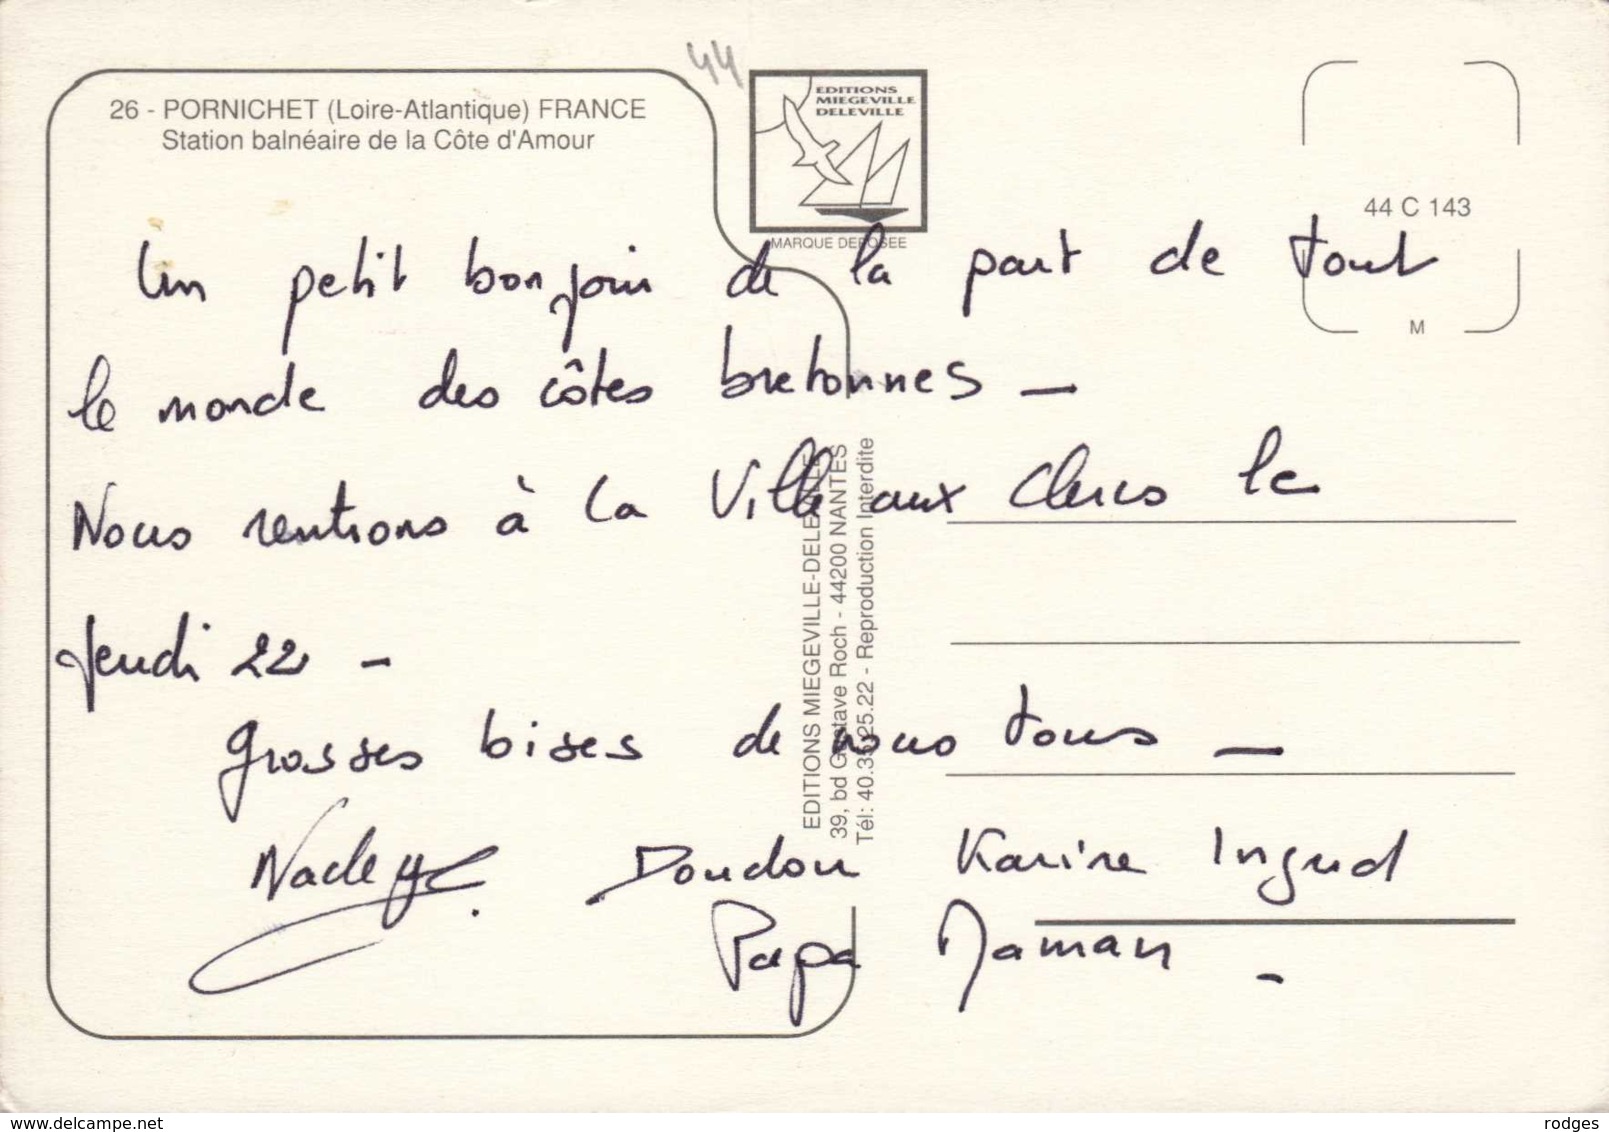 44
26 - PORNICHET (Loire-Atlantique) FRANCE
Station balnéaire de la Côte d'Amour
EDITIONS
MIEGEVILLE
DELEVILLE
MARQUE DEPOSEE
44 C 143
M
Un petit bonjour de la part de tout
le monde des côtes bretonnes -
Nous rentrons à la Ville aux Clercs le
jeudi 22 -
grosses bises de nous tous -
Nadege Doudou Karine Ingrid
Papa Maman -
EDITIONS MIEGEVILLE-DELEVILLE
39, bd Gustave Roch - 44200 NANTES
Tél: 40.35.25.22 - Reproduction Interdite
www.delcampe.net
rodges